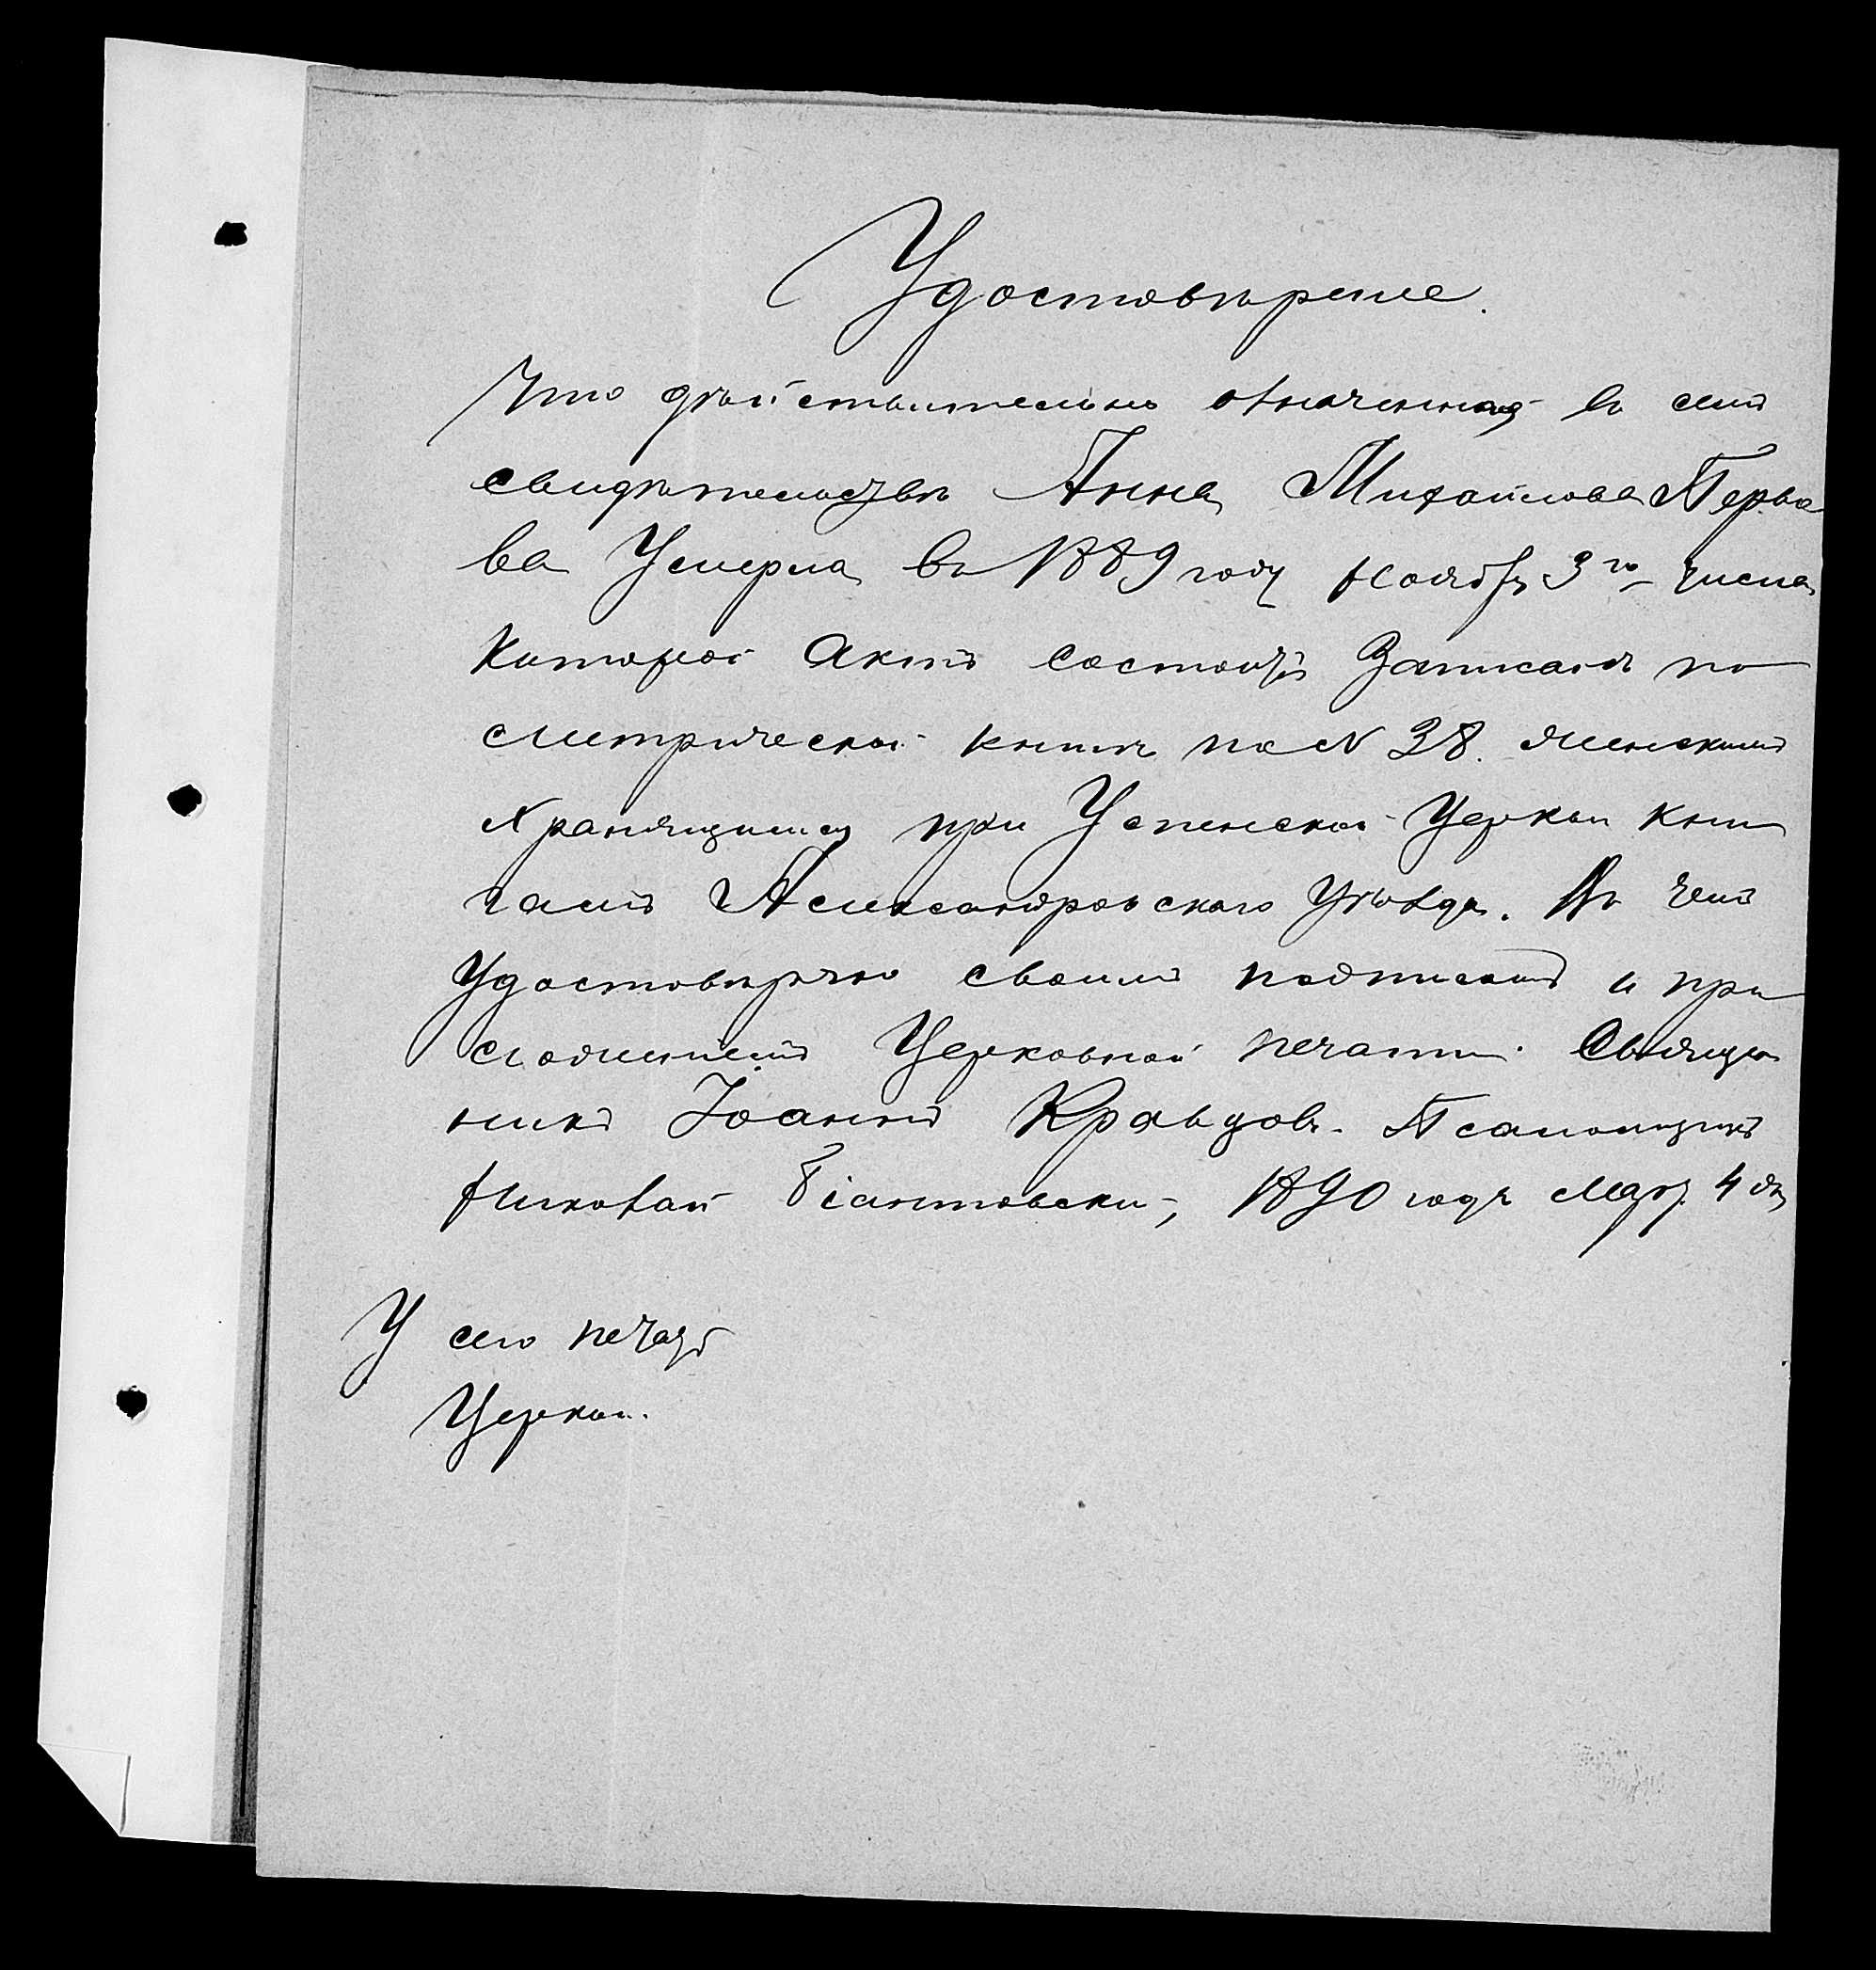 Удостовѣреніе.
Что дѣйствительно означенная въ семъ
свидѣтельствѣ Анна Михайлова Перва
ва Умерла въ 1889 году Ноября 3го числа
Которой Актъ состоитъ Записанъ по
метрической книгѣ по N 38. женскимъ
хранящимся при Успенской Церкви кни
гамъ Александровскаго Уѣзда. Въ чемъ
Удостовѣряю своимъ подписомъ и при
ложеніемъ Церковной печати. Священ
никъ Іоаннъ Кравцовъ. Псаломщикъ
Николай 1890 года Мар. 4 дн
У сего печать
Церкви.